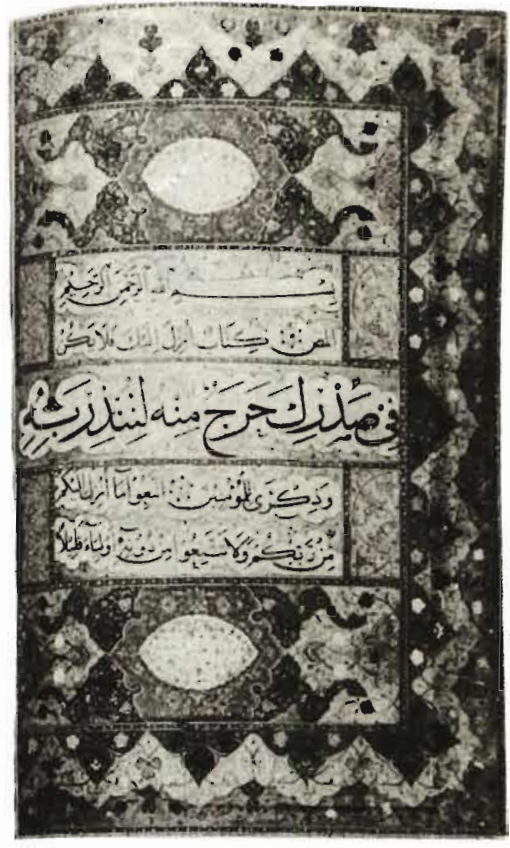 بِسْمِ اللهِ الرَّحْمٰنِ الرَّحِيمِ
المص كِتَابٌ أُنْزِلَ إِلَيْكَ فَلَا يَكُنْ
فِي صَدْرِكَ حَرَجٌ مِنْهُ لِتُنْذِرَ بِهِ
وَذِكْرَى لِلْمُؤْمِنِينَ اتَّبِعُوا مَا أُنْزِلَ إِلَيْكُمْ
مِنْ رَبِّكُمْ وَلَا تَتَّبِعُوا مِنْ دُونِهِ أَوْلِيَاءَ قَلِيلًا